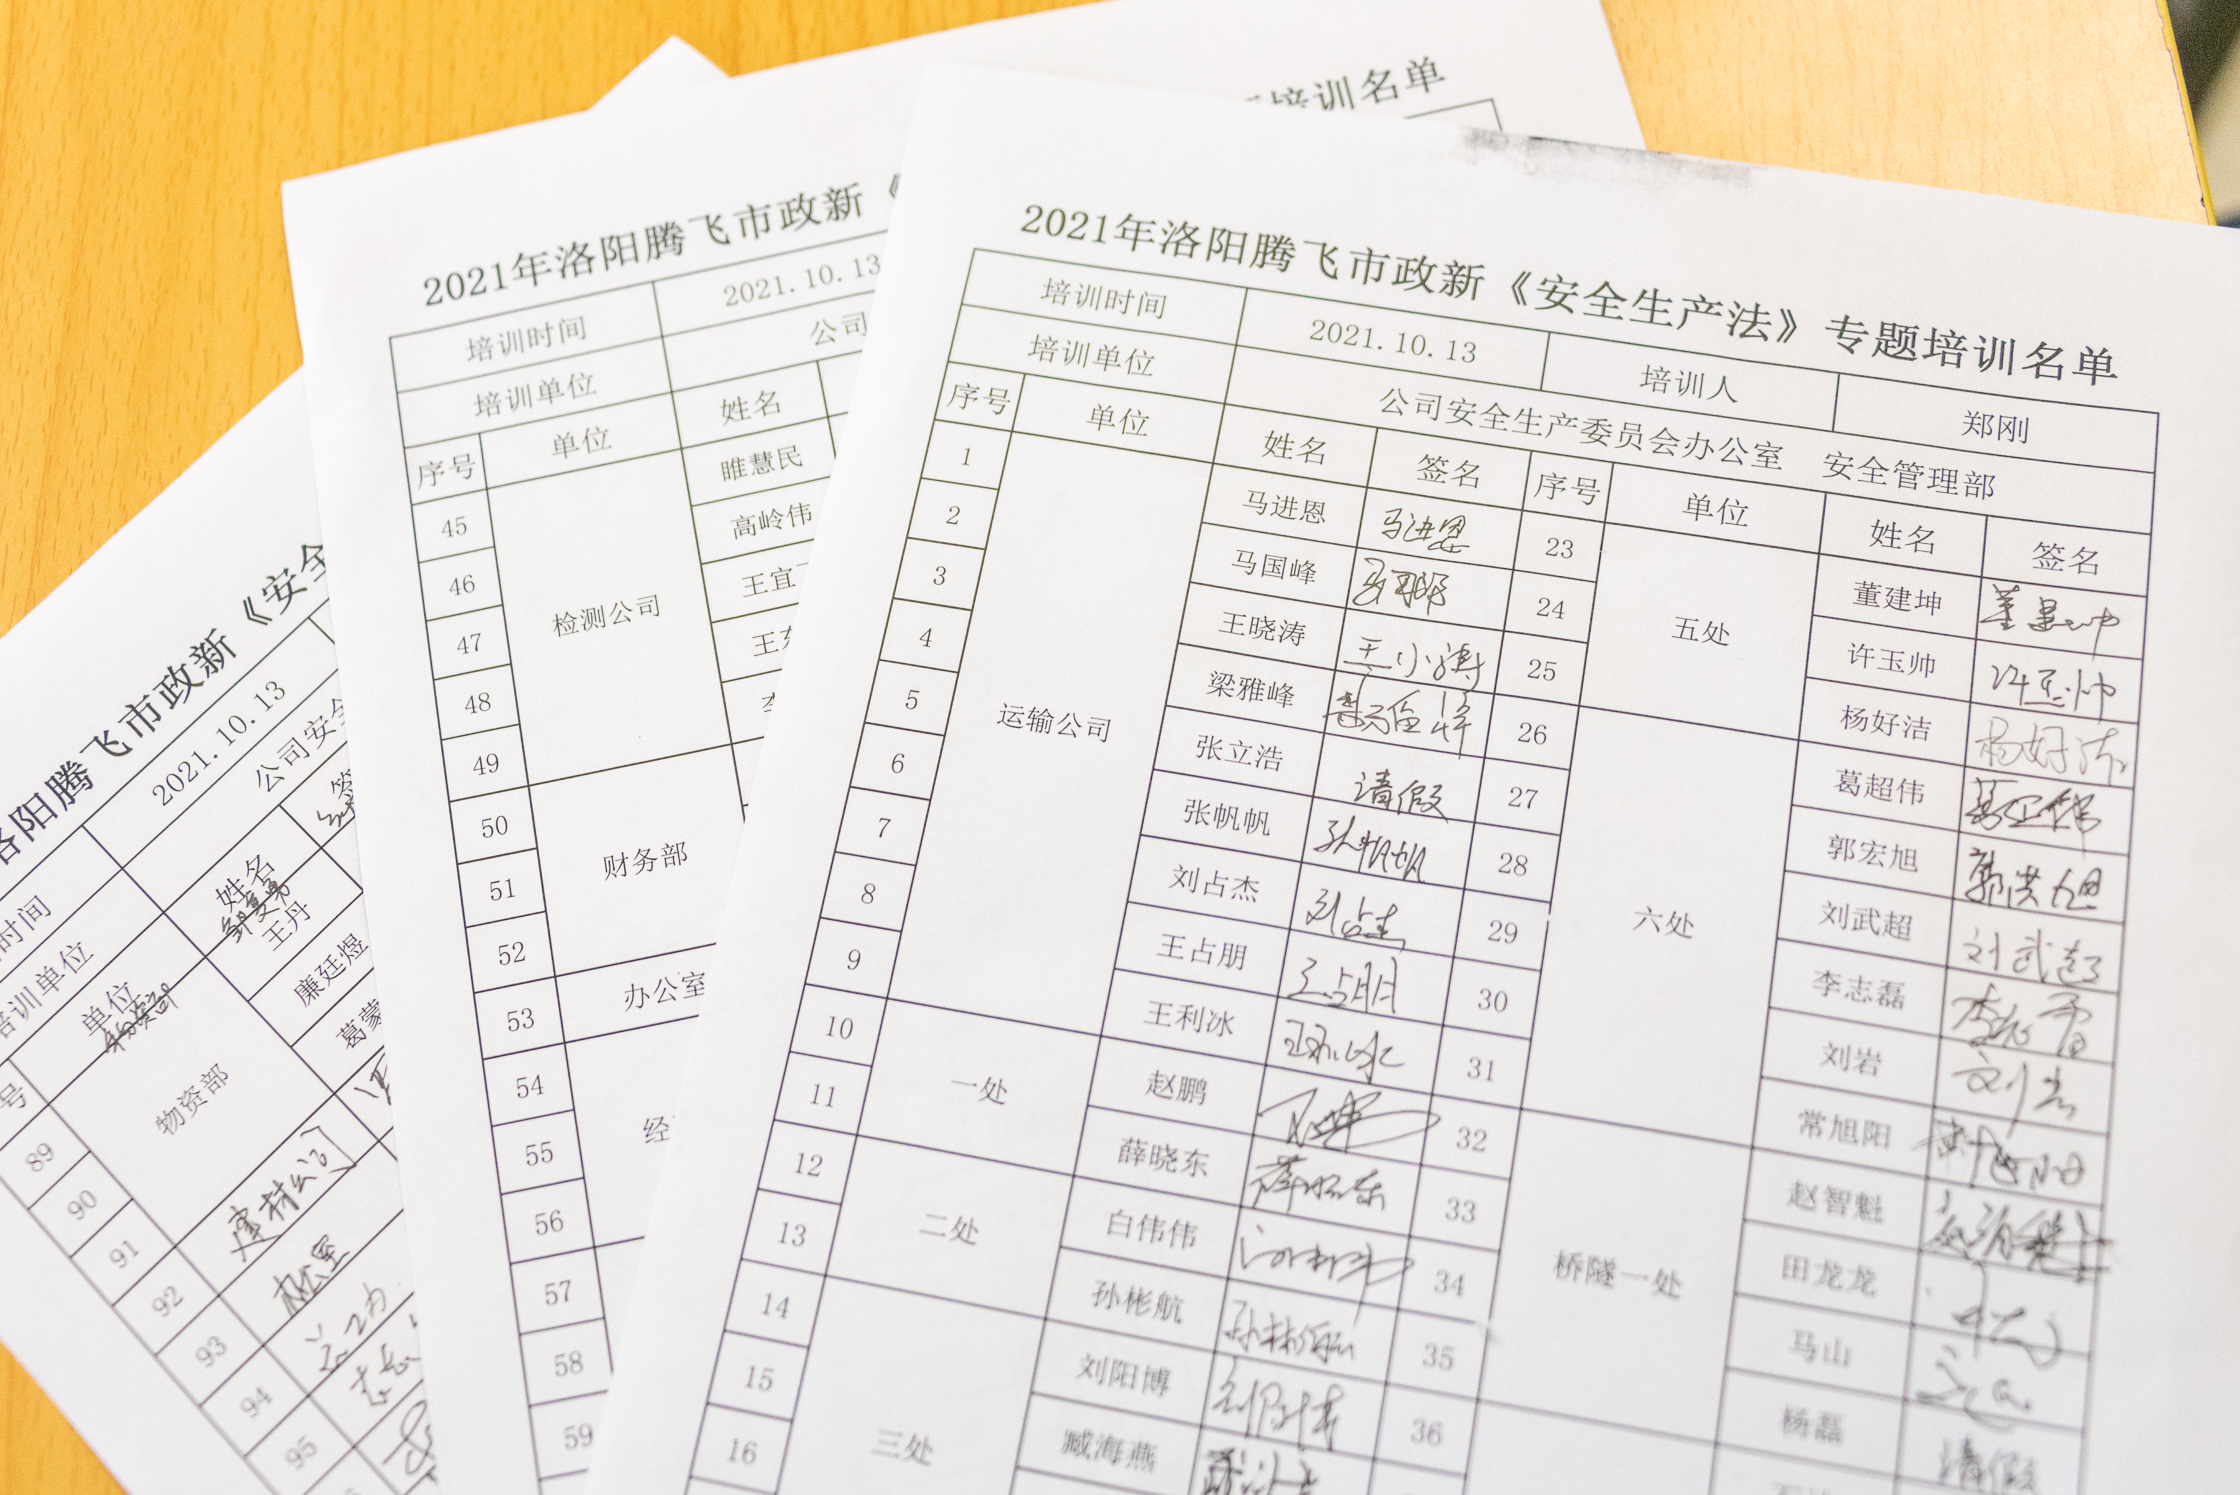 培训名单
2021年洛阳腾飞市政新《安全生产法》专题培训名单
培训时间 2021.10.13 培训人 郑刚
培训单位 公司安全生产委员会办公室 安全管理部
序号 单位 姓名 签名 序号 单位 姓名 签名
1 运输公司 马进恩 马进恩 23 五处 董建坤
2 马国峰 24 许玉帅 许玉帅
3 王晓涛 王小涛 25 杨好洁 杨好洁
4 梁雅峰 26 六处 葛超伟
5 张立浩 请假 27 郭宏旭 郭洪旭
6 张帆帆 张帆帆 28 刘武超 刘武超
7 刘占杰 刘占杰 29 李志磊
8 王占朋 王占朋 30 刘岩 刘岩
9 王利冰 王利冰 31 常旭阳
10 一处 赵鹏 32 桥隧一处 赵智魁
11 薛晓东 薛晓东 33 田龙龙
12 二处 白伟伟 34 马山
13 孙彬航 35 杨磊 请假
14 三处 刘阳博 36
15 臧海燕
16
2021年洛阳腾飞市政新《
培训时间 2021.10.13
培训单位 公司
序号 单位 姓名
45 检测公司 睢慧民
46 高岭伟
47 王宜
48 王
49
50 财务部
51
52
53 办公室
54 经
55
56
57
58
59
洛阳腾飞市政新《安全
时间 2021.10.13
培训单位 公司安全
号 单位 姓名 签
物资部
89 物资部 王丹
90 廉廷煜
91 葛蒙
92 建材公司
93
94
95